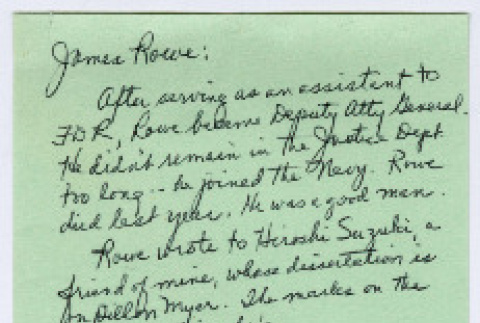 James Rowe:
After serving as an assistant to
FDR, Rowe became Deputy Atty General.
He didn't remain in the Justice Dept
too long -- he joined the Navy. Rowe
died last year. He was a good man.
Rowe wrote to Hiroshi Suzuki, a
friend of mine, whose dissertation is
on Dillon Myer. The marks on the